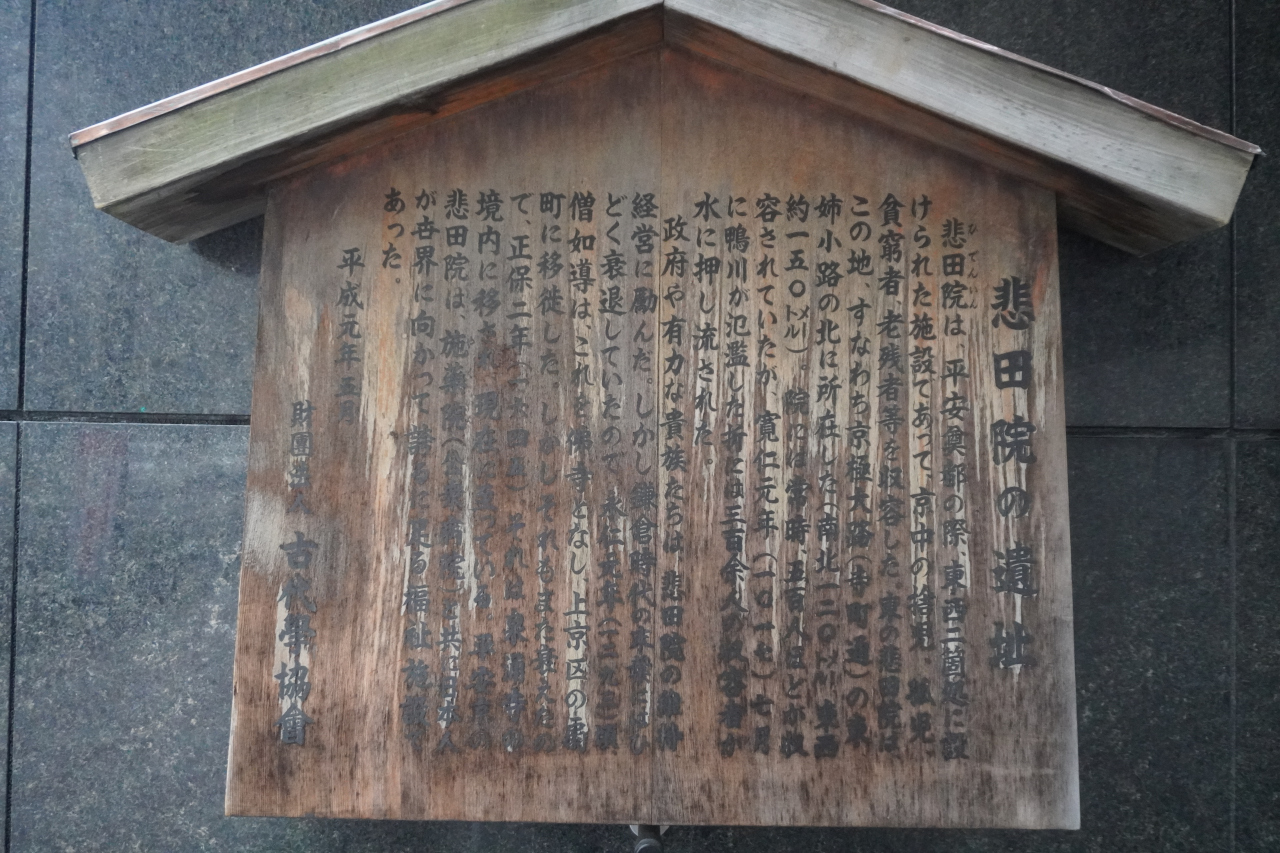 悲田院の遺址
悲田院は、平安奠都の際、東西二箇処に設
ひでんいん
けられた施設であって、京中の捨児、孤児、
貧窮者、老残者等を収容した。東の悲田院は
この地、すなわち京極大路(寺町通)の東
姉小路の北に所在した(南北一二〇メートル 東西
約一五〇メートル)。院には常時、五百人ほどが収
容されていたが、寛仁元年(一〇一七)七月
に鴨川が氾濫した折には三百余人の収容者が
水に押し流された。
政府や有力な貴族たちは、悲田院の維持、
経営に励んだ。しかし鎌倉時代の末葉にはひ
どく衰退していたので、永仁元年(一二九三)頃
僧如導は、これを佛寺となし、上京区の
町に移徙した。しかしそれもまた衰えたの
で、正保二年(一六四五)それは泉涌寺の
境内に移され現在に至っている。平安京の
悲田院は、施薬院 と共に日本人
が世界に向かって誇るに足る福祉施設で
あった。
平成元年五月
財團法人 古代學協會